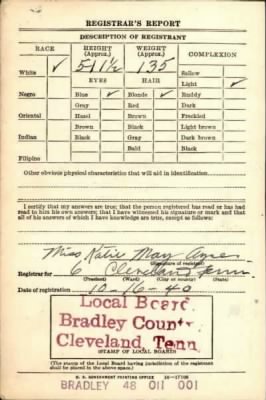 REGISTRAR'S REPORT
DESCRIPTION OF REGISTRANT
RACE HEIGHT (Approx.) WEIGHT (Approx.) COMPLEXION
White ✓ 5 11½ 135 Sallow
EYES HAIR Light ✓
Negro Blue ✓ Blonde ✓ Ruddy
Gray Red Dark
Oriental Hazel Brown Freckled
Brown Black Light brown
Indian Black Gray Dark brown
Bald Black
Filipino
Other obvious physical characteristics that will aid in identification
I certify that my answers are true; that the person registered has read or has had read to him his own answers; that I have witnessed his signature or mark and that all of his answers of which I have knowledge are true, except as follows:
Miss Katie May
(Signature of registrar)
Registrar for 6 Cleveland Tenn
(Precinct) (Ward) (City or county) (State)
Date of registration 10-16-40
Local Board
Bradley County
Cleveland, Tenn.
(STAMP OF LOCAL BOARD)
(The stamp of the Local Board having jurisdiction of the registrant shall be placed in the above space.)
U. S. GOVERNMENT PRINTING OFFICE
BRADLEY 48 011 001